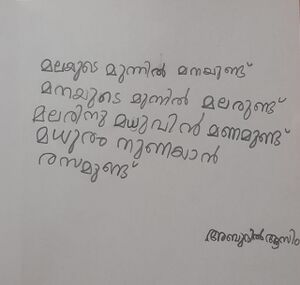 മലയുടെ മുന്നിൽ മനയുണ്ട്
മനയുടെ മുന്നിൽ മലരുണ്ട്
മലരിനു മധുവിൻ മണമുണ്ട്
മധുരം നുണയാൻ
രസമുണ്ട്